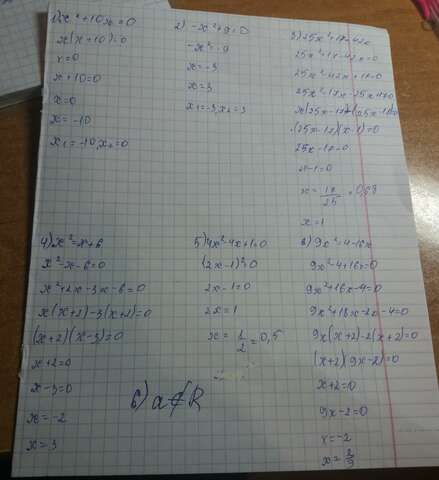 1) x²+10x=0
x(x+10)=0
x=0
x+10=0
x=0
x=-10
x₁=-10, x₂=0
2) -x²+9=0
-x²=-9
x=-3
x=3
x₁=-3, x₂=3
3) 25x²+17=42x
25x²+17-42x=0
25x²-42x+17=0
25x²-17x-25x+17=0
x(25x-17)-(25x-17)=0
(25x-17)(x-1)=0
25x-17=0
x-1=0
x=17/25=0,68
x=1
4) x²=x+6
x²-x-6=0
x²+2x-3x-6=0
x(x+2)-3(x+2)=0
(x+2)(x-3)=0
x+2=0
x-3=0
x=-2
x=3
5) 4x²-4x+1=0
(2x-1)²=0
2x-1=0
2x=1
x=1/2=0,5
6) a∉R
8) 9x²=4-16x
9x²-4+16x=0
9x²+16x-4=0
9x²+18x-2x-4=0
9x(x+2)-2(x+2)=0
(x+2)(9x-2)=0
x+2=0
9x-2=0
x=-2
x=2/9